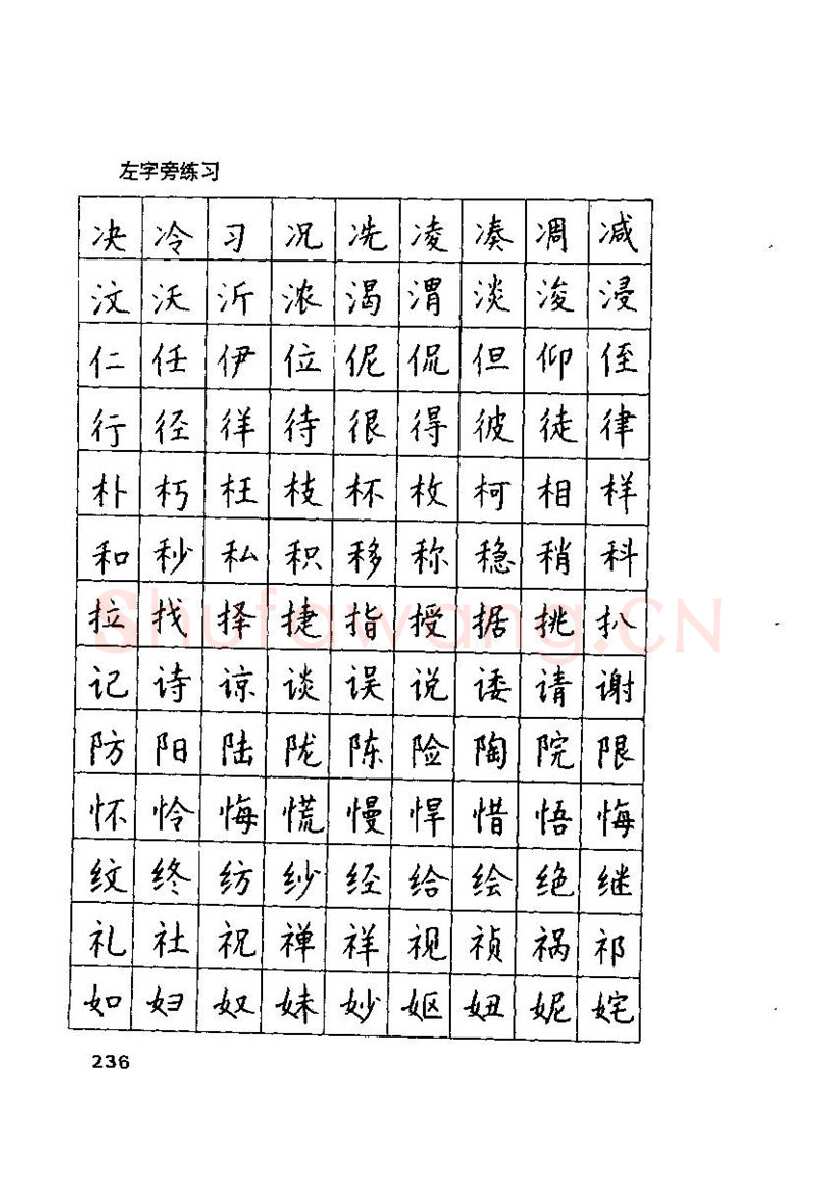 左字旁练习
决 冷 习 况 冼 凌 凑 凋 减
汶 沃 沂 浓 渴 渭 淡 浚 浸
仁 任 伊 位 伲 侃 但 仰 侄
行 径 徉 待 很 得 彼 徒 律
朴 朽 枉 枝 杯 枚 柯 相 样
和 秒 私 积 移 称 稳 稍 科
拉 找 择 捷 指 授 据 挑 扒
记 诗 谅 谈 误 说 诿 请 谢
防 阳 陆 陇 陈 险 陶 院 限
怀 怜 悔 慌 慢 悍 惜 悟 悔
纹 终 纺 纱 经 给 绘 绝 继
礼 社 祝 禅 祥 视 祯 祸 祁
如 妇 奴 妹 妙 妪 妞 妮 姹
236
Shufawang.CN